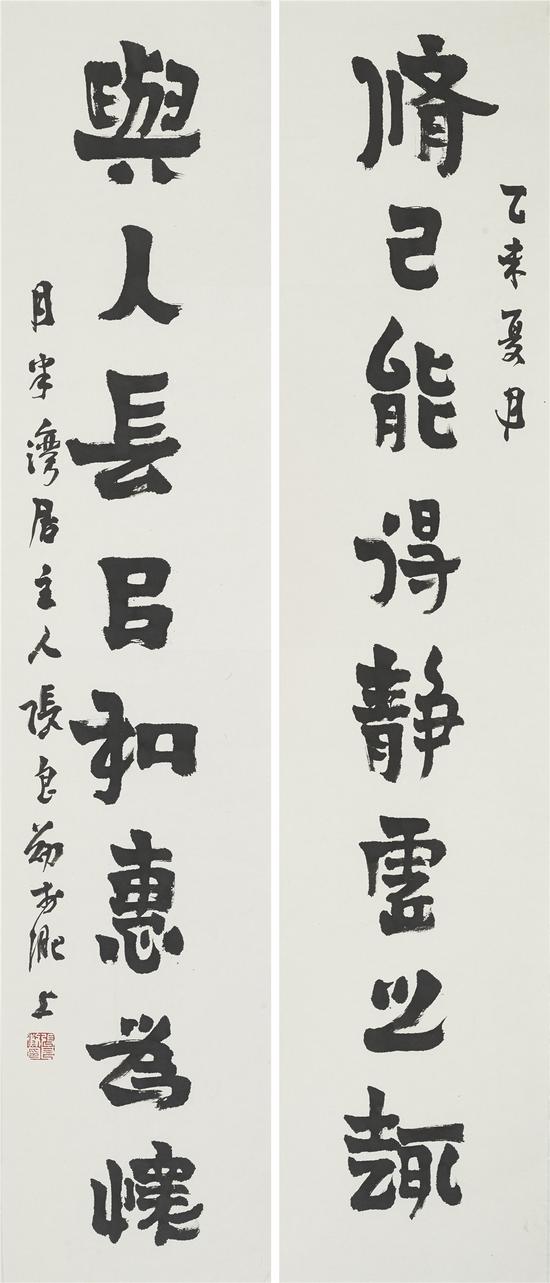 乙未夏月
脩己能得静虚之趣
與人長㠯和惠為懷
月半灣居主人張良勋於肥上